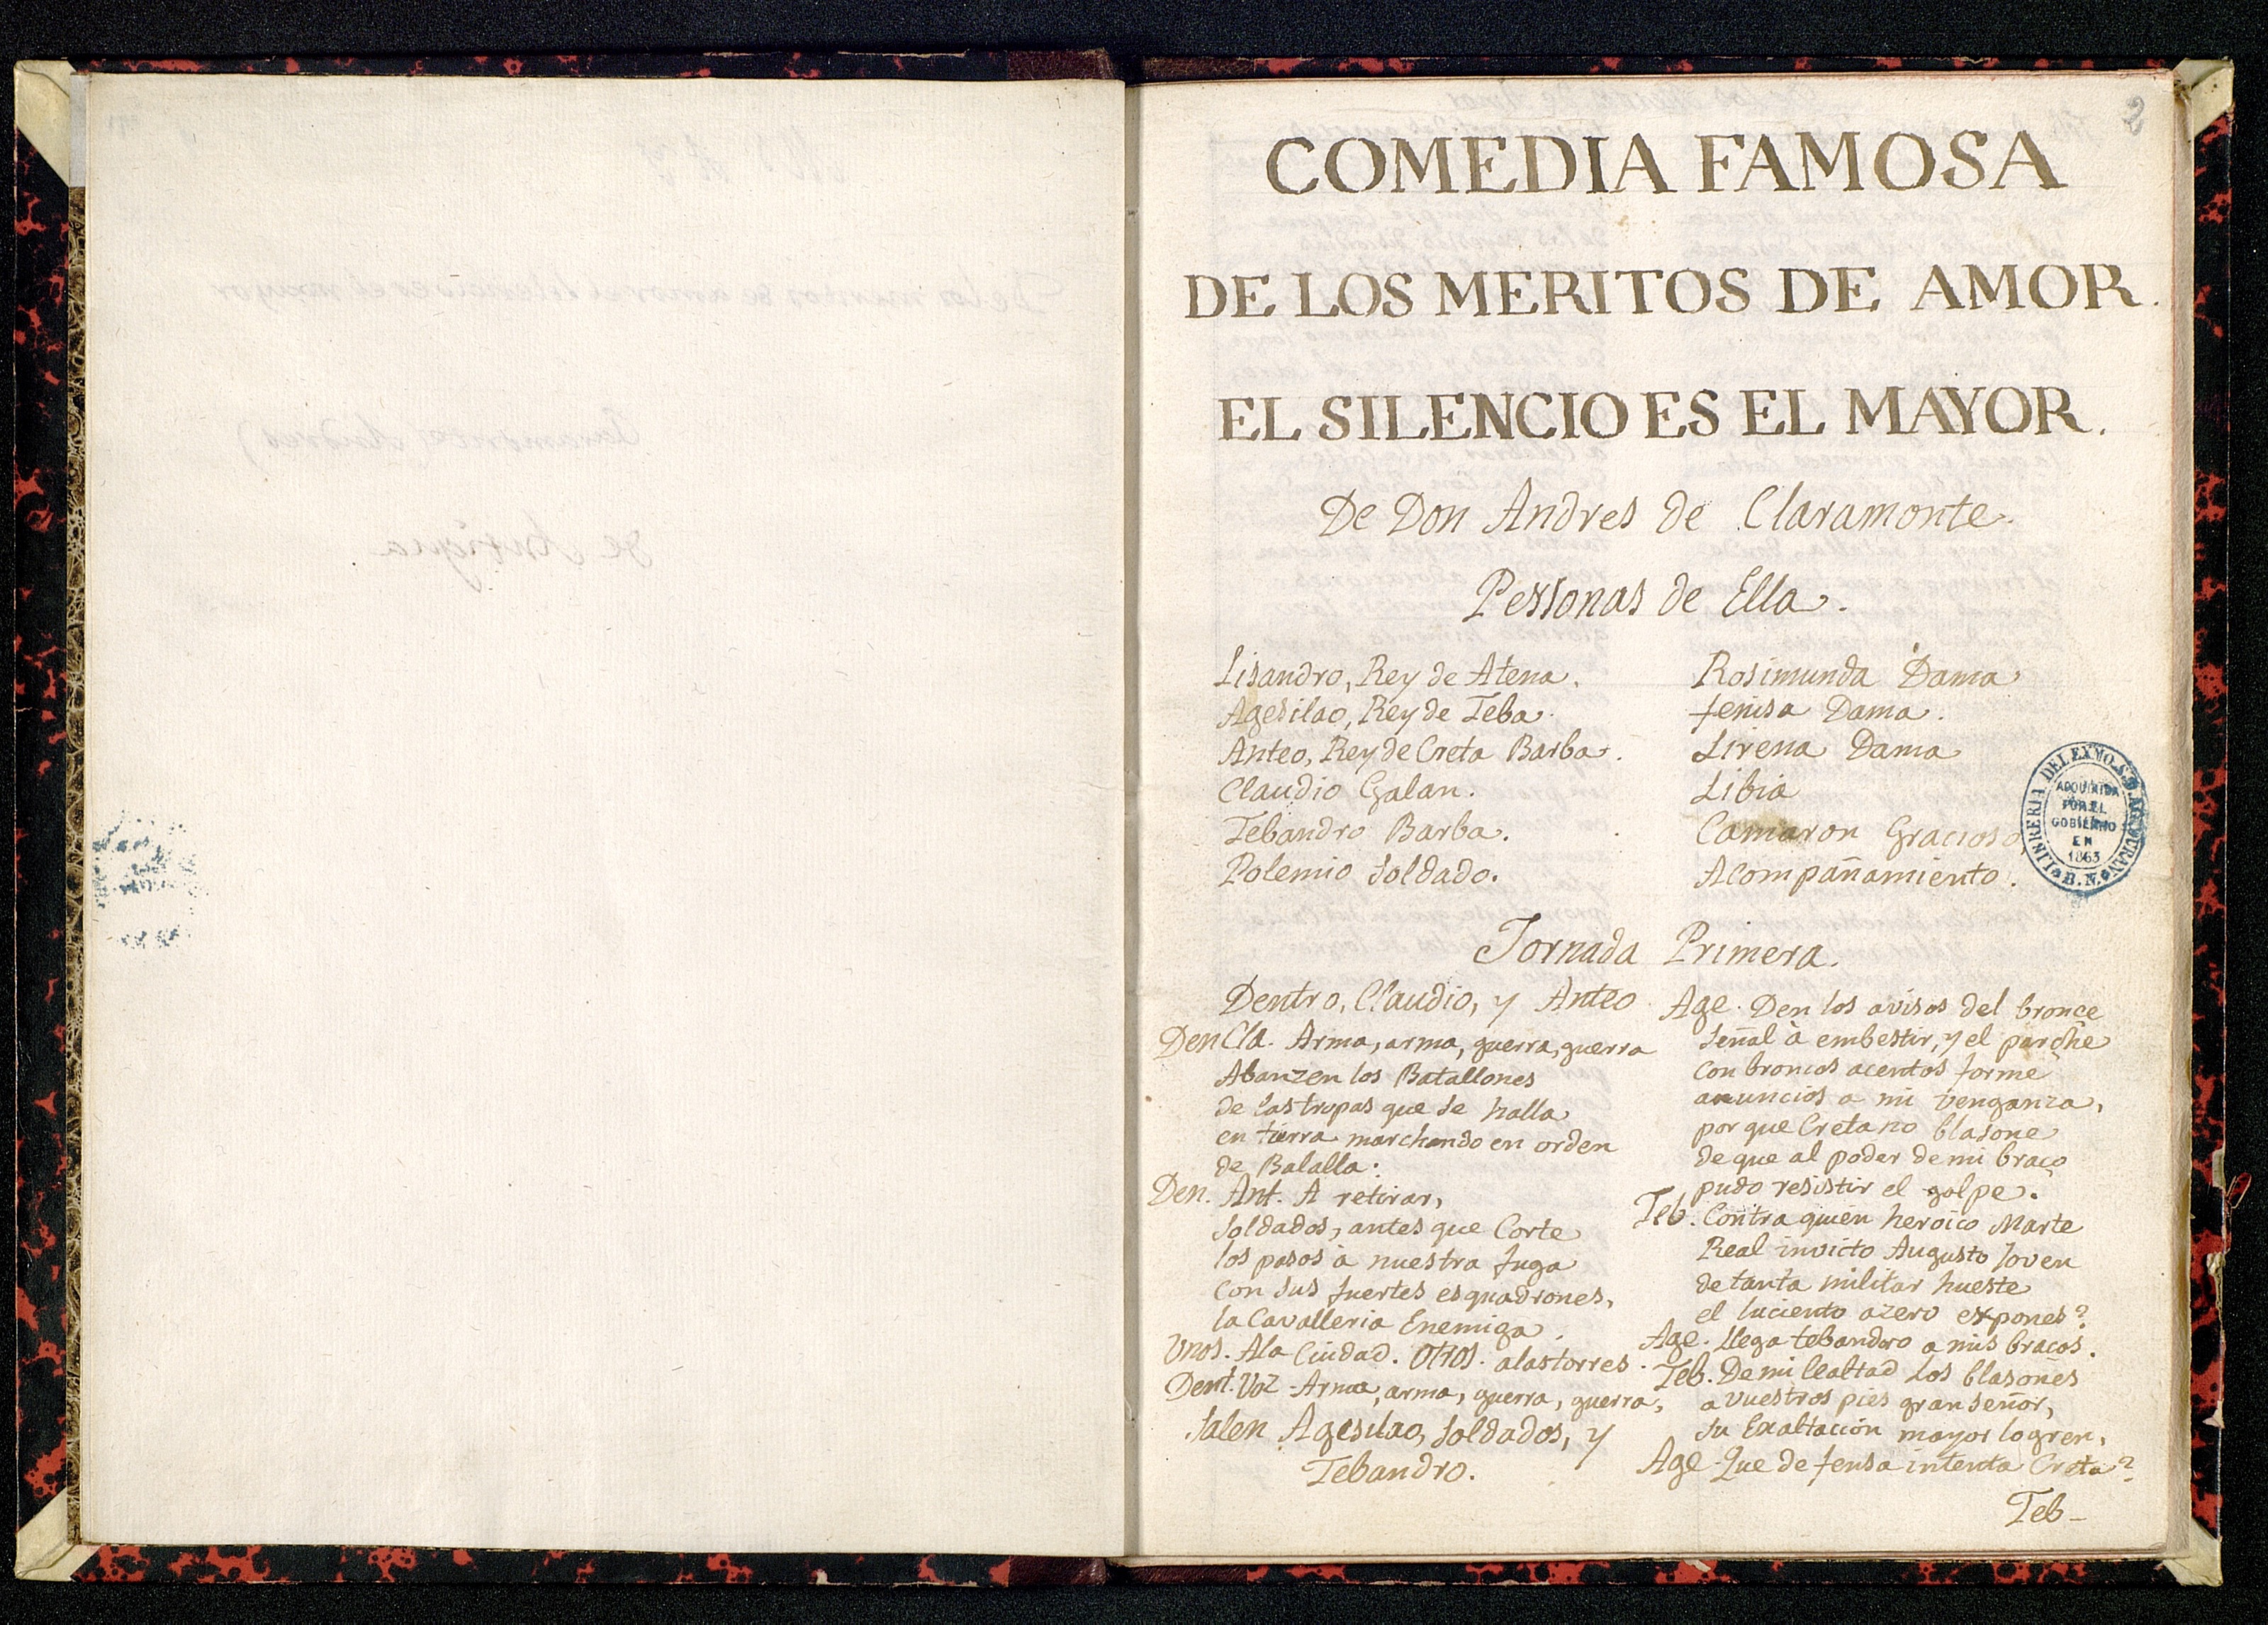 2
COMEDIA FAMOSA
DE LOS MERITOS DE AMOR.
EL SILENCIO ES EL MAYOR.
De Don Andres de Claramonte.
Personas de Ella.
Lisandro, Rey de Atena.
Agesilao, Rey de Teba.
Anteo, Rey de Creta Barba.
Claudio Galan.
Tebandro Barba.
Polemio Soldado.
Rosimunda Dama
fenisa Dama.
Sirena Dama
Libia
Camaron Gracioso
Acompañamiento.
LIBRERIA DEL EXMO. S. D. A. DURAN
ADQUIRIDA
POR EL
GOBIERNO
EN
1863
B. N.
Jornada Primera.
Dentro, Claudio, y Anteo
Den Cla. Arma, arma, guerra, guerra
Abanzen los Batallones
de las tropas que se halla
en tierra marchando en orden
de Balalla.
Den. Ant. A retirar,
soldados, antes que Corte
los pasos à nuestra fuga
con sus fuertes esquadrones,
la Cavalleria Enemiga.
Unos. Ala Ciudad. Otros. alas torres.
Dent. Voz. Arma, arma, guerra, guerra,
Salen Agesilao, soldados, y
Tebandro.
Age. Den los avisos del bronce
señal à embestir, y el parche
con broncos acentos forme
anuncios a mi venganza,
por que Creta no blasone
de que al poder de mi braço
pudo resistir el golpe.
Teb. Contra quien heroico Marte
Real invicto Augusto Joven
de tanta militar hueste
el luciento azero expones?
Age. llega tebandro a mis bracos.
Teb. De mi lealtad los blasones
a vuestros pies gran señor,
su Exaltacion mayor logren,
Age. Que defensa intenta Creta?
Teb-